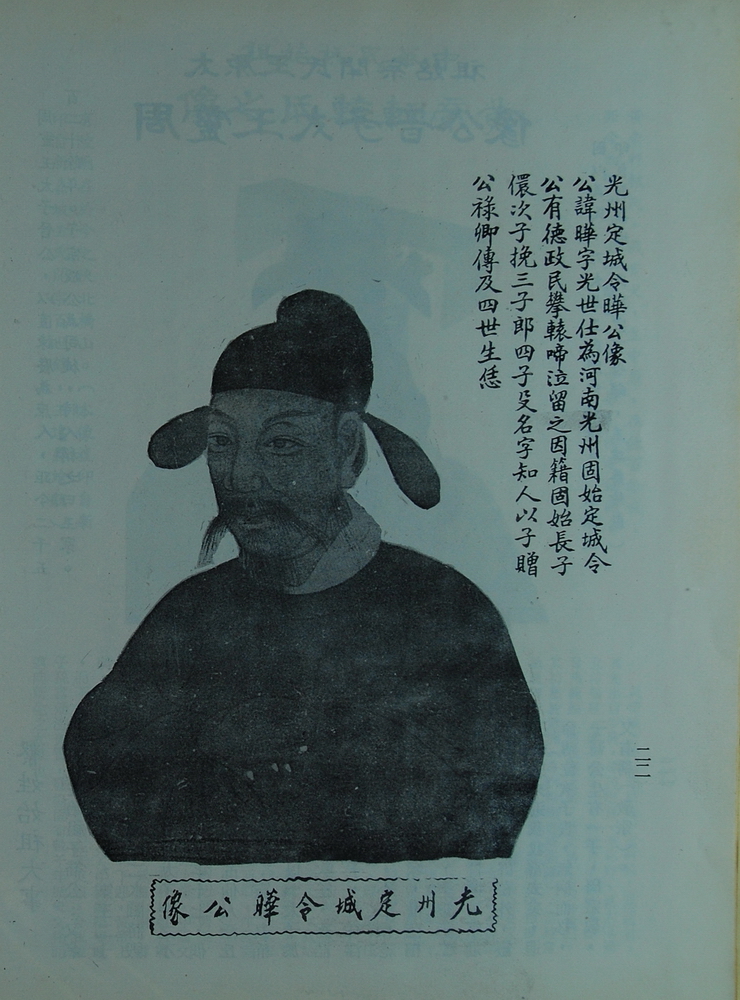 光州定城令曄公像
公諱曄字光世仕為河南光州固始定城令
公有德政民攀轅啼泣留之因籍固始長子
儇次子挽三子郎四子殳名字知人以子贈
公祿卿傳及四世生恁
二二
光州定城令曄公像